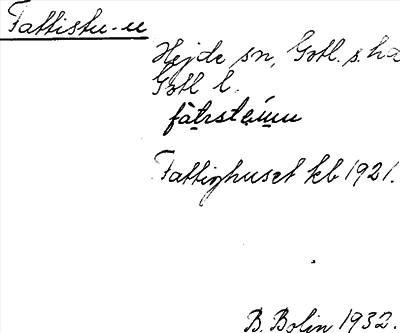 Fattistu-u
Hejde sn, Gotl. s. hd
Gotl l.
Fattighuset kb 1921.
B. Bolin 1932.